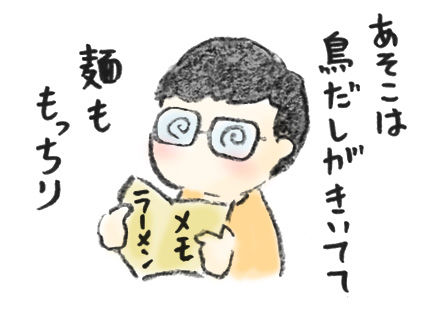 あそこは
鳥だしがきいてて
麺も
もっちり
ラーメン
メモ